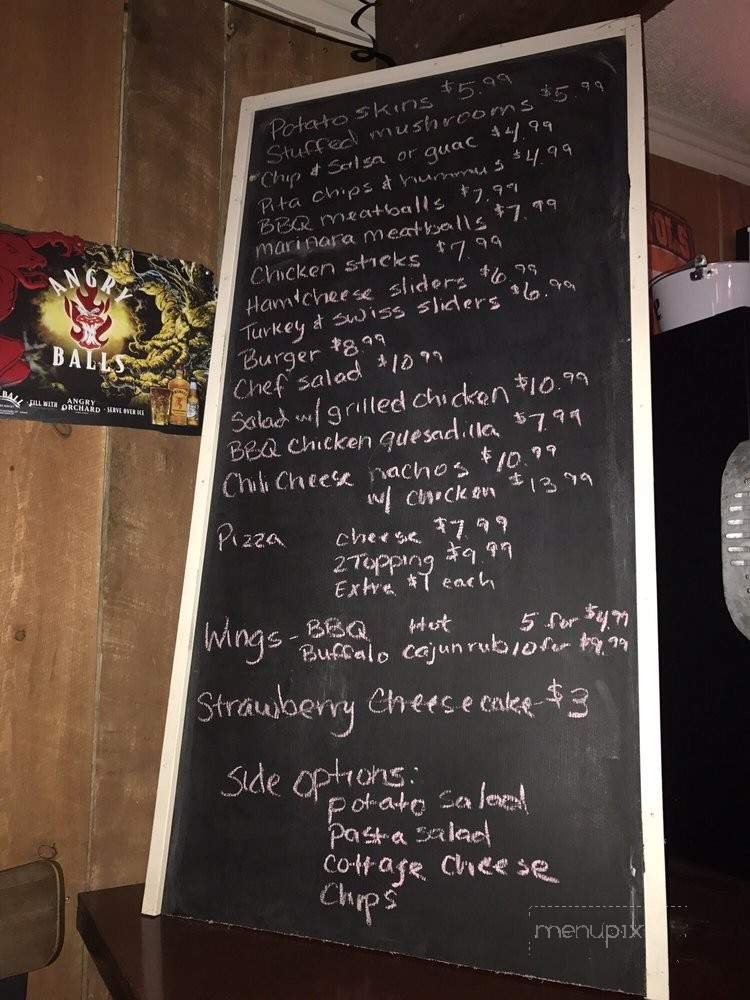 Potato skins $5.99
Stuffed mushrooms $5.99
Chip & Salsa or guac $4.99
Pita chips & hummus $4.99
BBQ meatballs $7.99
marinara meatballs $7.99
Chicken sticks $7.99
Ham & cheese sliders $6.99
Turkey & swiss sliders $6.99
Burger $8.99
Chef salad $10.99
Salad w/ grilled chicken $10.99
BBQ chicken quesadilla $7.99
Chili Cheese nachos $10.99
w/ chicken $13.99
Pizza cheese $7.99
2 Topping $9.99
Extra $1 each
Wings - BBQ Hot 5 for $4.99
Buffalo cajun rub 10 for $9.99
Strawberry Cheesecake - $3
Side options:
potato salad
Pasta salad
cottage cheese
Chips
ANGRY
BALLS
FILL WITH ANGRY ORCHARD · SERVE OVER ICE
menupix